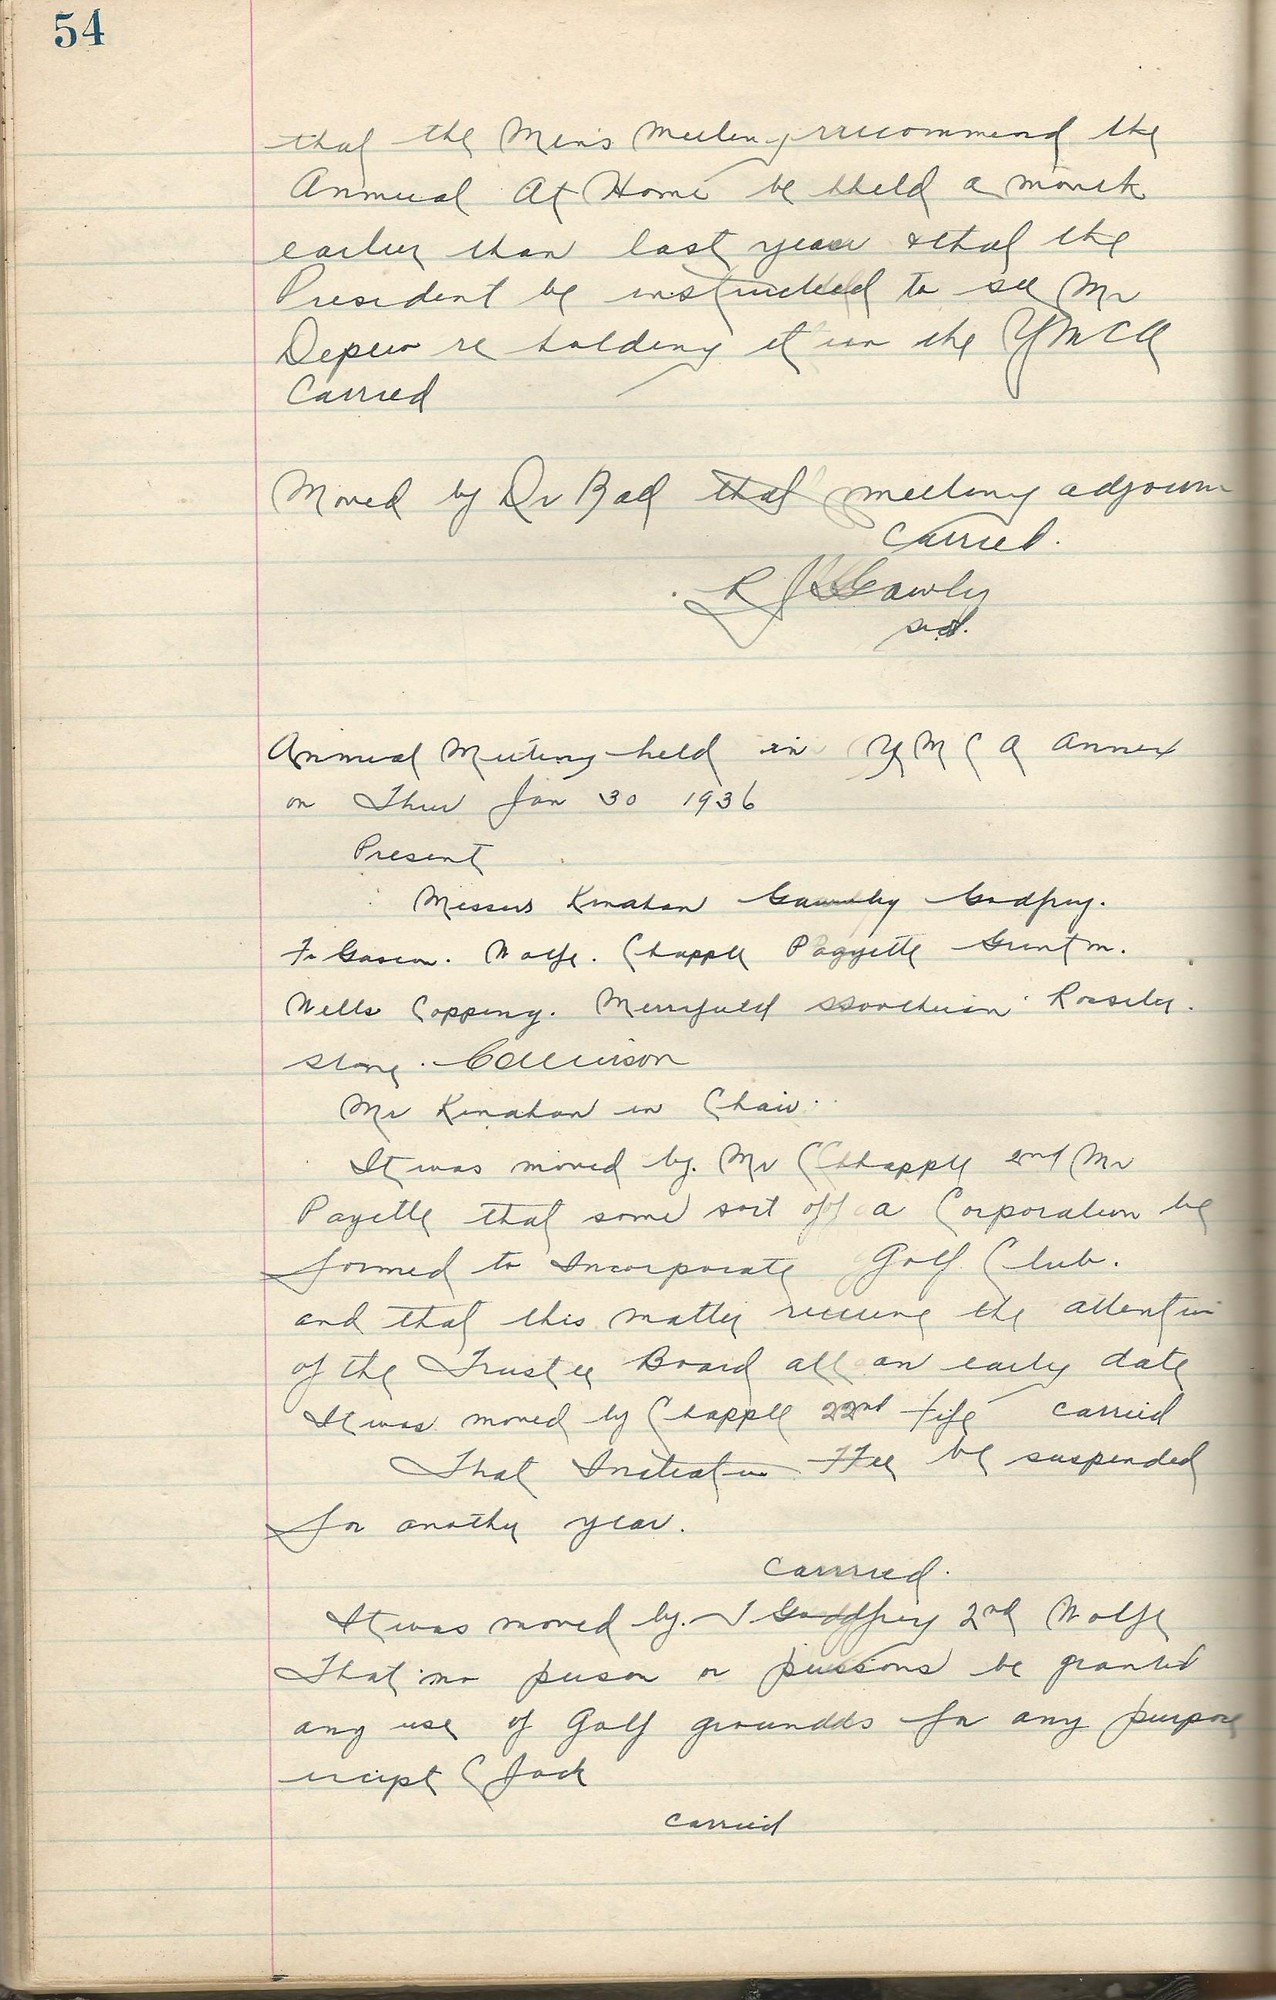 54
that the Mens Meeting recommend the
Annual At Home be held a month
earlier than last year & that the
President be instructed to see Mr
Depew re holding it in the YMCA
Carried
Moved by Dr that meeting adjourn
Carried.
R J Gawley
Annual Meeting held in Y M C A Annex
on Thur Jan 30 1936
Present
Messers Kinahan Gawley Godfrey.
Wolfe. Chapple Payette Grunton.
Wells Copping. Merrifield
Stong.
Mr Kinahan in Chair.
It was moved by. Mr Chapple 2nd Mr
Payette that some sort of a Corporation be
formed to Incorporate Golf Club.
and that this matter receive the attention
of the Trustee Board at an early date
It was moved by Chapple 2nd Fife carried
That Initiation Fee be suspended
for another year.
Carried.
It was moved by. J Godfrey 2nd Wolfe
That no person or persons be granted
any use of Golf grounds for any purpose
except Jack
carried